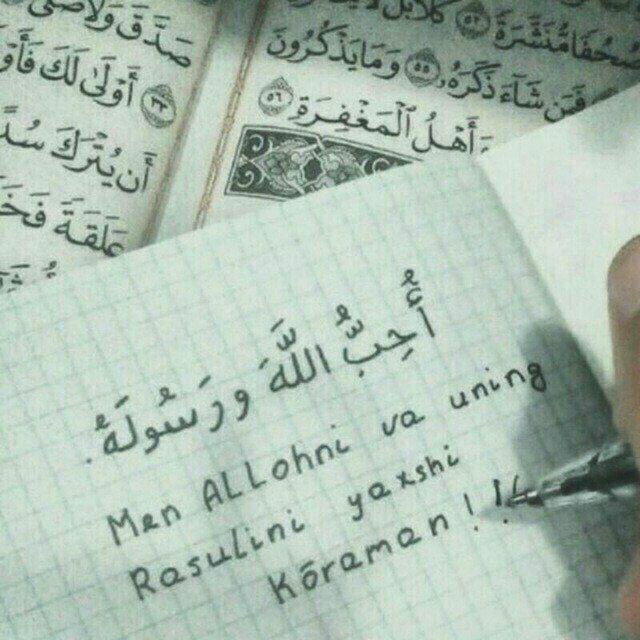 صُحُفًا مُّنَشَّرَةً ٥٢ كَلَّا بَل
فَمَن شَآءَ ذَكَرَهُۥ ٥٥ وَمَا يَذْكُرُونَ
أَهْلُ ٱلْمَغْفِرَةِ ٥٦
صَدَّقَ وَلَا صَلَّىٰ
أَوْلَىٰ لَكَ فَأَوْ
أَن يُتْرَكَ سُدً
عَلَقَةً فَخَ
أُحِبُّ اللَّهَ وَرَسُولَهُ.
Men ALLohni va uning
Rasulini yaxshi
Kōraman!!!